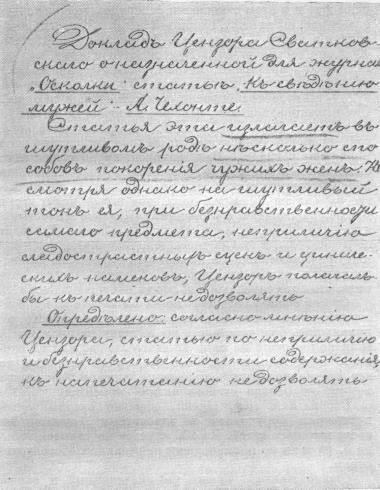 Докладъ Цензора Сватков-
скаго о назначенной для журнала
„Осколки“ статьѣ „Къ свѣдѣнію
мужей“ – А. Чехонте.
Статья эта излагаетъ въ
шутливомъ родѣ нѣсколько спо
собовъ покоренія чужихъ женъ. Не
смотря однако на шутливый
тонъ ея, при безнравственности
самаго предмета, неприличію
сладострастныхъ сценъ и циниче-
скихъ намековъ, Цензоръ полагалъ
бы къ печати не дозволять
Опредѣлено: согласно мнѣнію
Цензора, статью по неприличію
и безнравственности содержанія,
къ напечатанію не дозволять